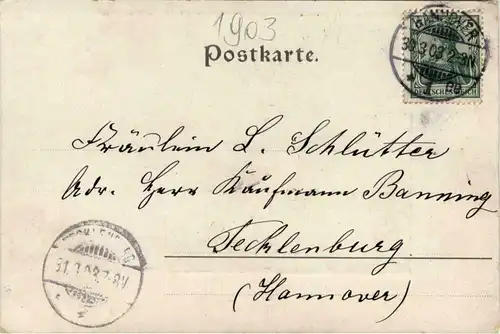 1903
Postkarte.
HANNOVER
30.3.03.2-3N
DEUTSCHES REICH
Fräulein L. Schlütter
Adr. Herr Kaufmann Banning
Tecklenburg
(Hannover)
TECKLENBURG
31.3.03.7-8V